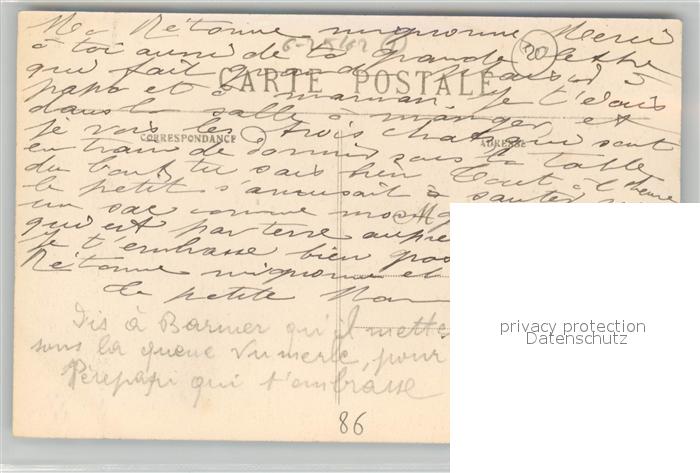 Ma Rétonne mignonne Merci
à toi aussi de ta grande lettre
20
qui fait grand plaisir à
CARTE POSTALE
papa et à maman. Je t'écris
dans la salle à manger et
je vois les trois chats qui sont
CORRESPONDANCE
ADRESSE
en train de dormir sous la table
du bout, tu sais bien Tout à l'heure
le petit s'amusait à sauter
un sac comme
qui est par terre auprès
Je t'embrasse bien
Rétonne mignonne et
la petite
Dis à Barmer qu'il mette
sous la queue du merle, pour
Pérepapi qui t'embrasse
86
privacy protection
Datenschutz